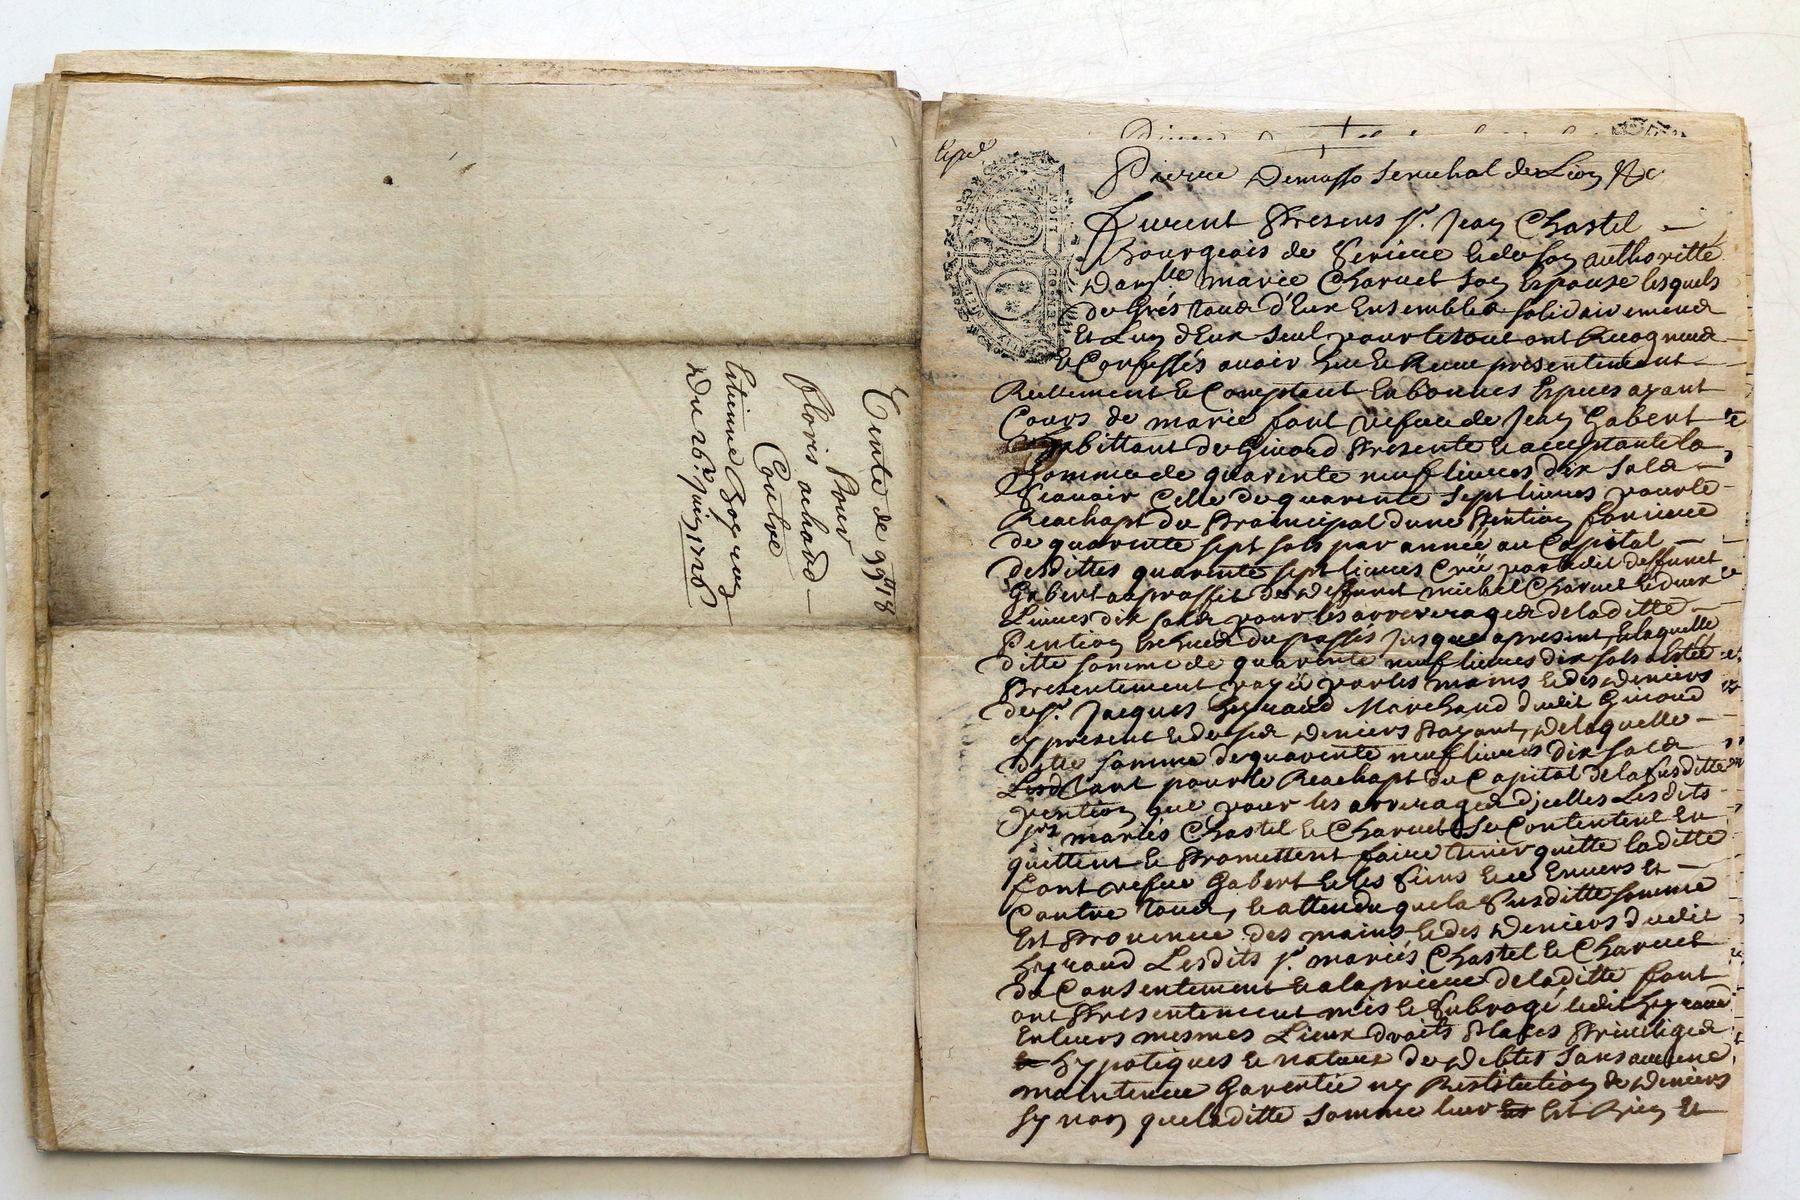 Vente de 99ᵗᵗ 18
Pour
floris achard —
Contre
Etienne
Du 26ᵉ Juin 1728
Pierre Demasso Senechal de Lion &c
Furent Presens sʳ. Jean Chastel —
Bourgeois de et de son authoritté
Damˡˡᵉ marie Charvet son Espouse lesquels
de Grés tous d'Eux Ensembles solidairement
Et L'un d'Eux seul pour le tout ont Recogneu
et Confessés avoir heu et Receu presentement
Reellement et Comptant En bonnes Especes ayant
Cours de marie font vefve de Jean Gabert
habittant de Girord Presente et acceptante la
somme de quarente neuf livres dix sols —
scavoir Celle de quarente sept livres pour le
Reachapt du Praincipal d'une Pention fonciere
de quarente sept sols par année au Capital —
desdittes quarente sept livres Créé par ledit deffunct
Gabert au proffit de deffunct michel Charvet et deux
Livres dix sols pour les arrerages de laditte —
Pention Escheus du passés Jusques a present, et laquelle
ditte somme de quarente neuf livres dix sols a Estée
Presentement payée par les mains et des Deniers
de sʳ. Jacques heyraud Marchand dudit Giroud
cy present et de ses Deniers Payant, De laquelle —
ditte somme de quarente neuf livres dix sols
tant pour le Reachapt du Capital de la susditte
pention que pour les arrerages d'icelles Lesdits
sʳˢ mariés Chastel et Charvet se Contentent En
quittent et Promettent faire tenir quitte laditte
font vefve Gabert et les siens Envers Et —
Contre tous, et attendu que la susditte somme
Est Provenue des mains et des Deniers dudit
heyraud Lesdits sʳ. mariés Chastel et Charvet
du Consentement et a la priere de laditte font
ont Presentement mis et subrogé ledit heyraud
En leurs mesmes Lieux droits Places Privileges
hypotiques et nature de Debtes sans aucune
maintenue Garentie ny Restitution de Deniers
sy non que laditte somme leur Est Bien Et